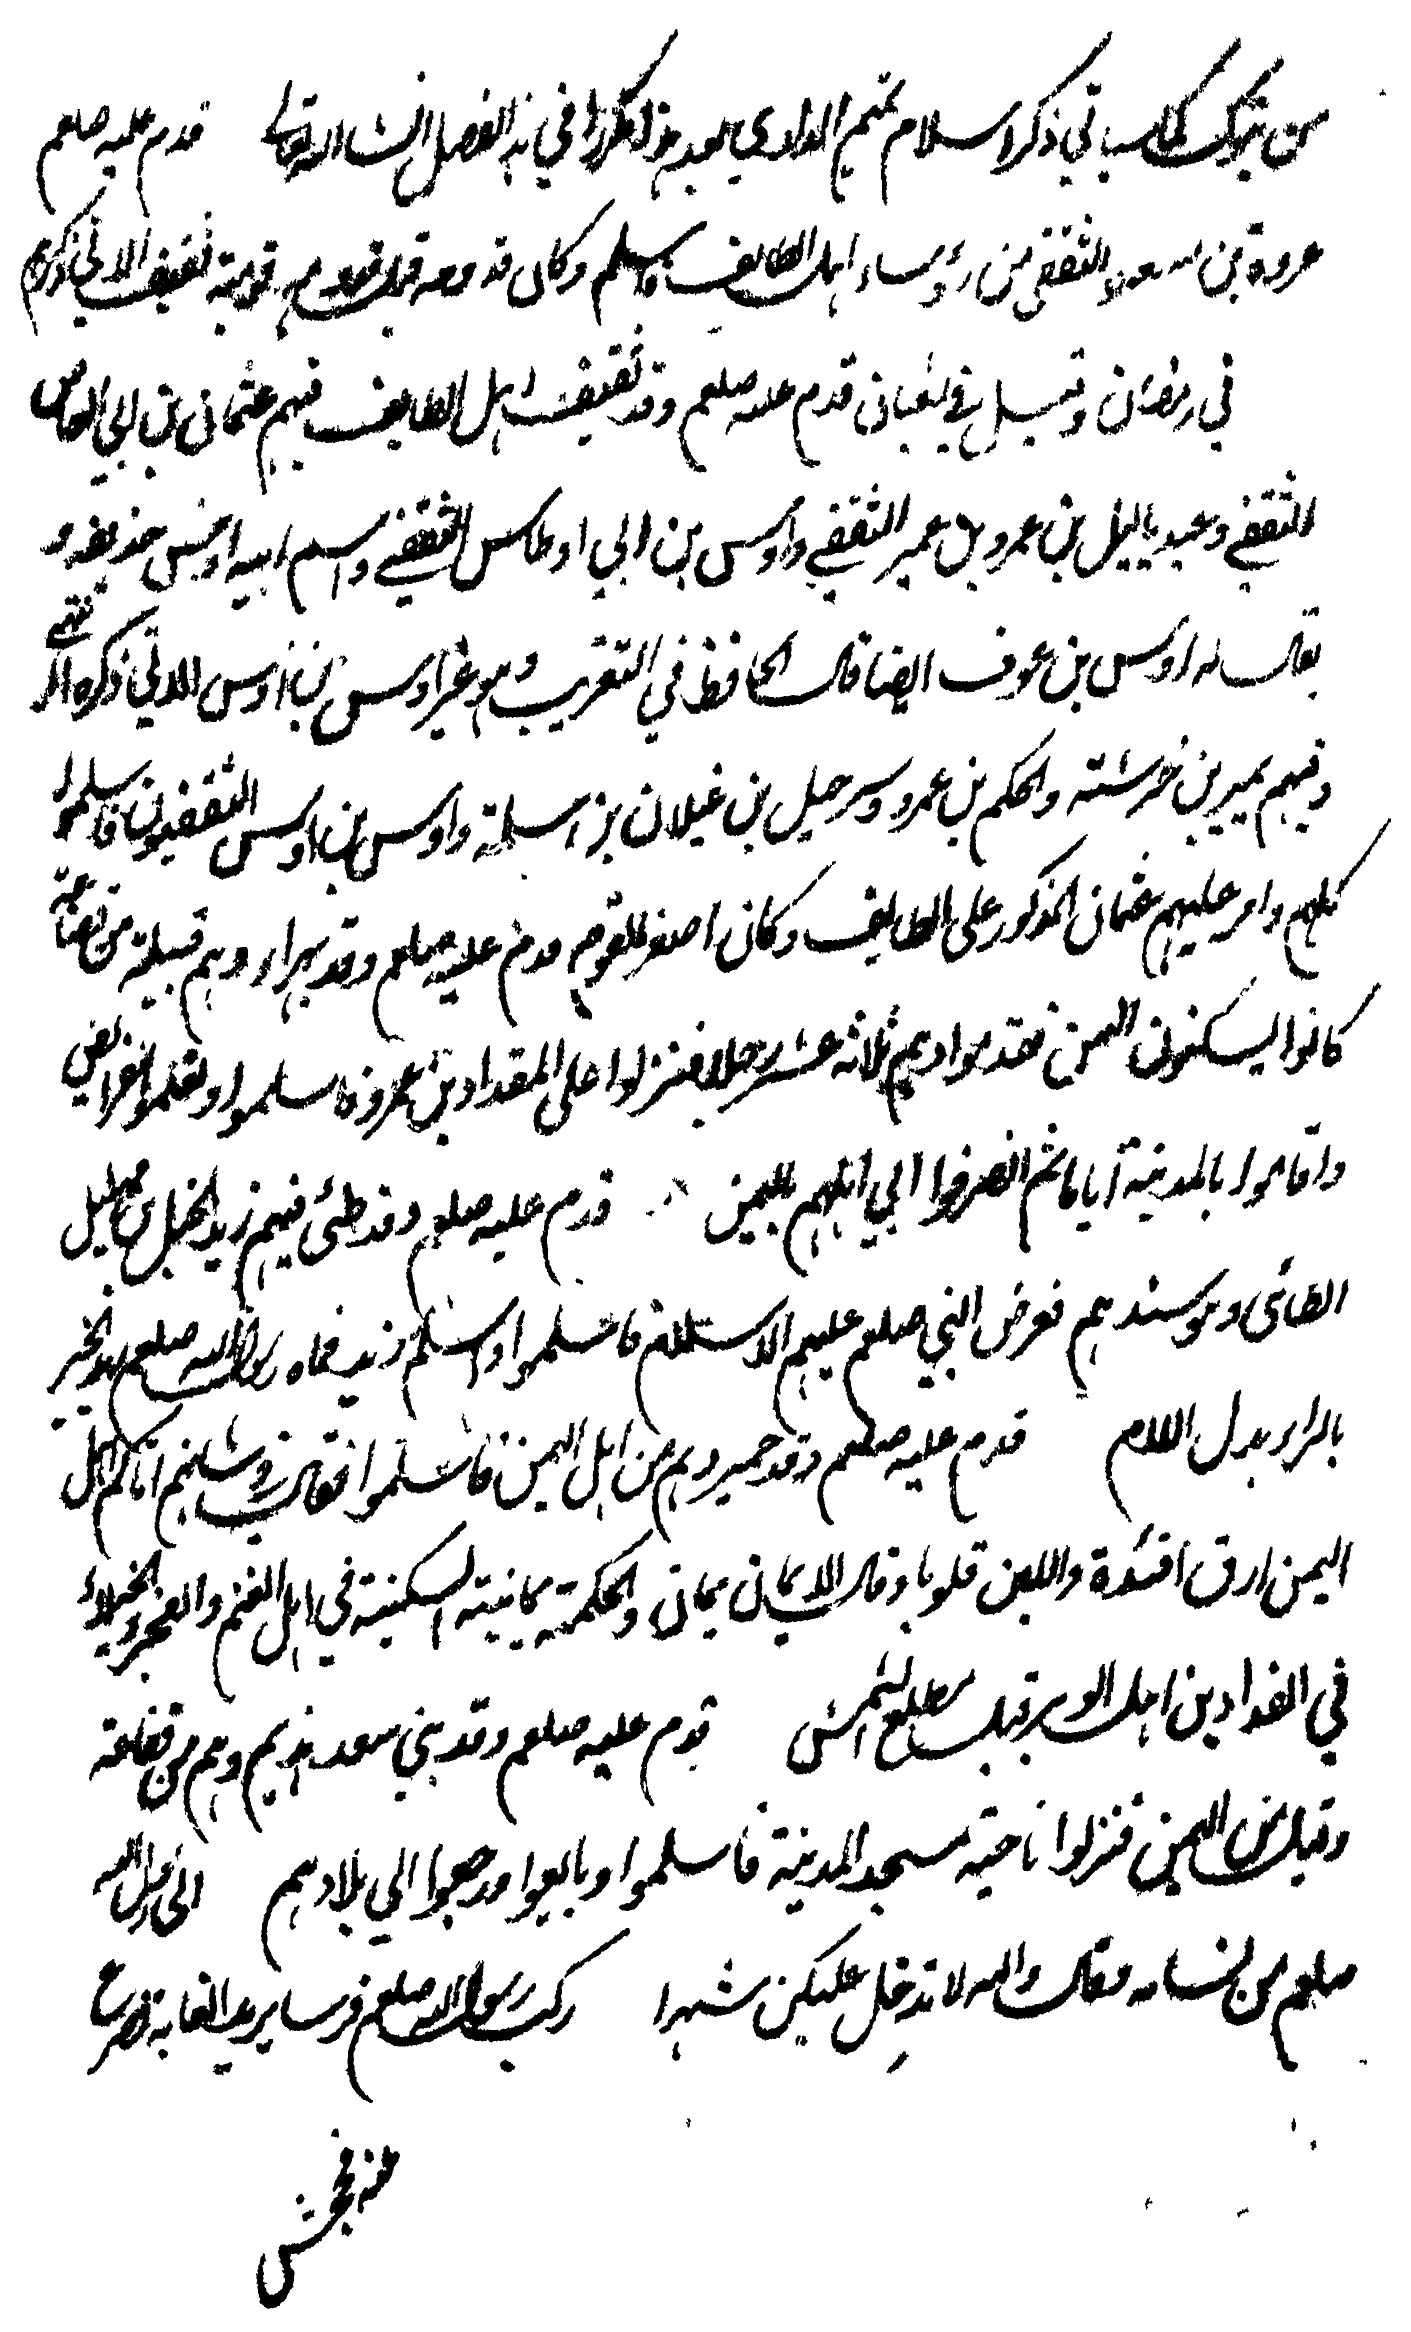 من تبوك كما سياتي ذكر اسلام تميم الداري بعيد هذا مكررا في هذا الفصل انشا الله تعالى قدم عليه صلعم
عروة بن مسعود الثقفي من رؤساء اهل الطايف فاسلم وكان قدومه قبل قدوم قومه ثقيف الاتي ذكرهم
في رمضان وقيل في شعبان قدم عليه صلعم وفد ثقيف اهل الطايف فيهم عثمان بن ابي العاص
الثقفي وعبد ياليل بن عمرو بن عمير الثقفي واوس بن ابي اوس الثقفي واسم ابيه اوس حذيفة و
يقال له اوس بن عوف ايضا قال الحافظ في التقريب وهو غير اوس بن اوس الاتي ذكره انتهى
وفيهم نمير بن خرشته والحكم بن عمرو وشرحيل بن غيلان بن سلمة واوس بن اوس الثقفيون فاسلموا
كلهم وامر عليهم عثمان المذكور على الطايف وكان اصغر القوم قدم عليه صلعم وفد بهراء وهم قبيلة من قضاعة
كانوا يسكنون اليمن فقدموا وهم ثلاثة عشر رجلا فنزلوا على المقداد بن عمرو فاسلموا وتعلموا الفرائض
واقاموا بالمدينة اياما ثم انصرفوا الي اهلهم باليمن قدم عليه صلعم وفد طئ فيهم زيد الخيل بن مهلهل
الطائي وهو سيدهم فعرض النبي صلعم عليهم الاسلام فاسلموا واسلم زيد فسماه رسول الله صلعم زيد الخير
بالراء بدل اللام قدم عليه صلعم وفد حمير وهم من اهل اليمن فاسلموا فقال في شانهم اتاكم اهل
اليمن ارق افئدة والين قلوبا وقال الايمان يمان والحكمة يمانية السكينة في اهل الغنم والفخر والخيلاء
في الفدادين اهل الوبر قبل مطلع الشمس قدم عليه صلعم وفد بني سعد هذيم وهم من قضاعة
وقيل من اليمن فنزلوا ناحية مسجد المدينة فاسلموا وبايعوا ورجعوا الي بلادهم الى رسول الله
صلعم من نسائه فقال والله لا ادخل عليكن شهرا ركب رسول الله صلعم فرسا يريد الغابة فصرع
عنه فجحش